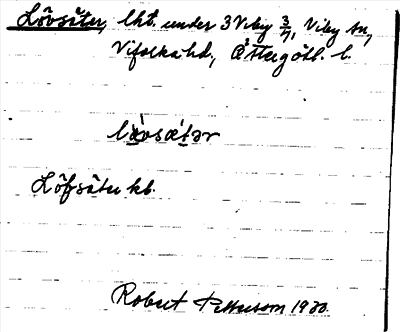 Lövsäter, lht. under 3 Viby 3/4, Viby sn,
Vifolka hd, Östergötl. l.
lö̀vsætər
Löfsäter kb.
Robert Pettersson 1930.